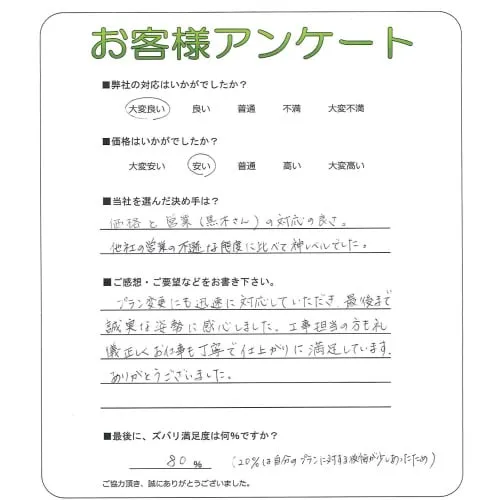 お客様アンケート
■弊社の対応はいかがでしたか？
大変良い 良い 普通 不満 大変不満
■価格はいかがでしたか？
大変安い 安い 普通 高い 大変高い
■当社を選んだ決め手は？
価格と営業(黒木さん)の対応の良さ。
他社の営業の不遜な態度に比べて神レベルでした。
■ご感想・ご要望などをお書き下さい。
プラン変更にも迅速に対応していただき、最後まで
誠実な姿勢に感心しました。工事担当の方も礼
儀正しくお仕事も丁寧で仕上がりに満足しています。
ありがとうございました。
■最後に、ズバリ満足度は何%ですか？
80 % (20%は自分のプランに対する後悔が少しあったため)
ご協力頂き、誠にありがとうございました。